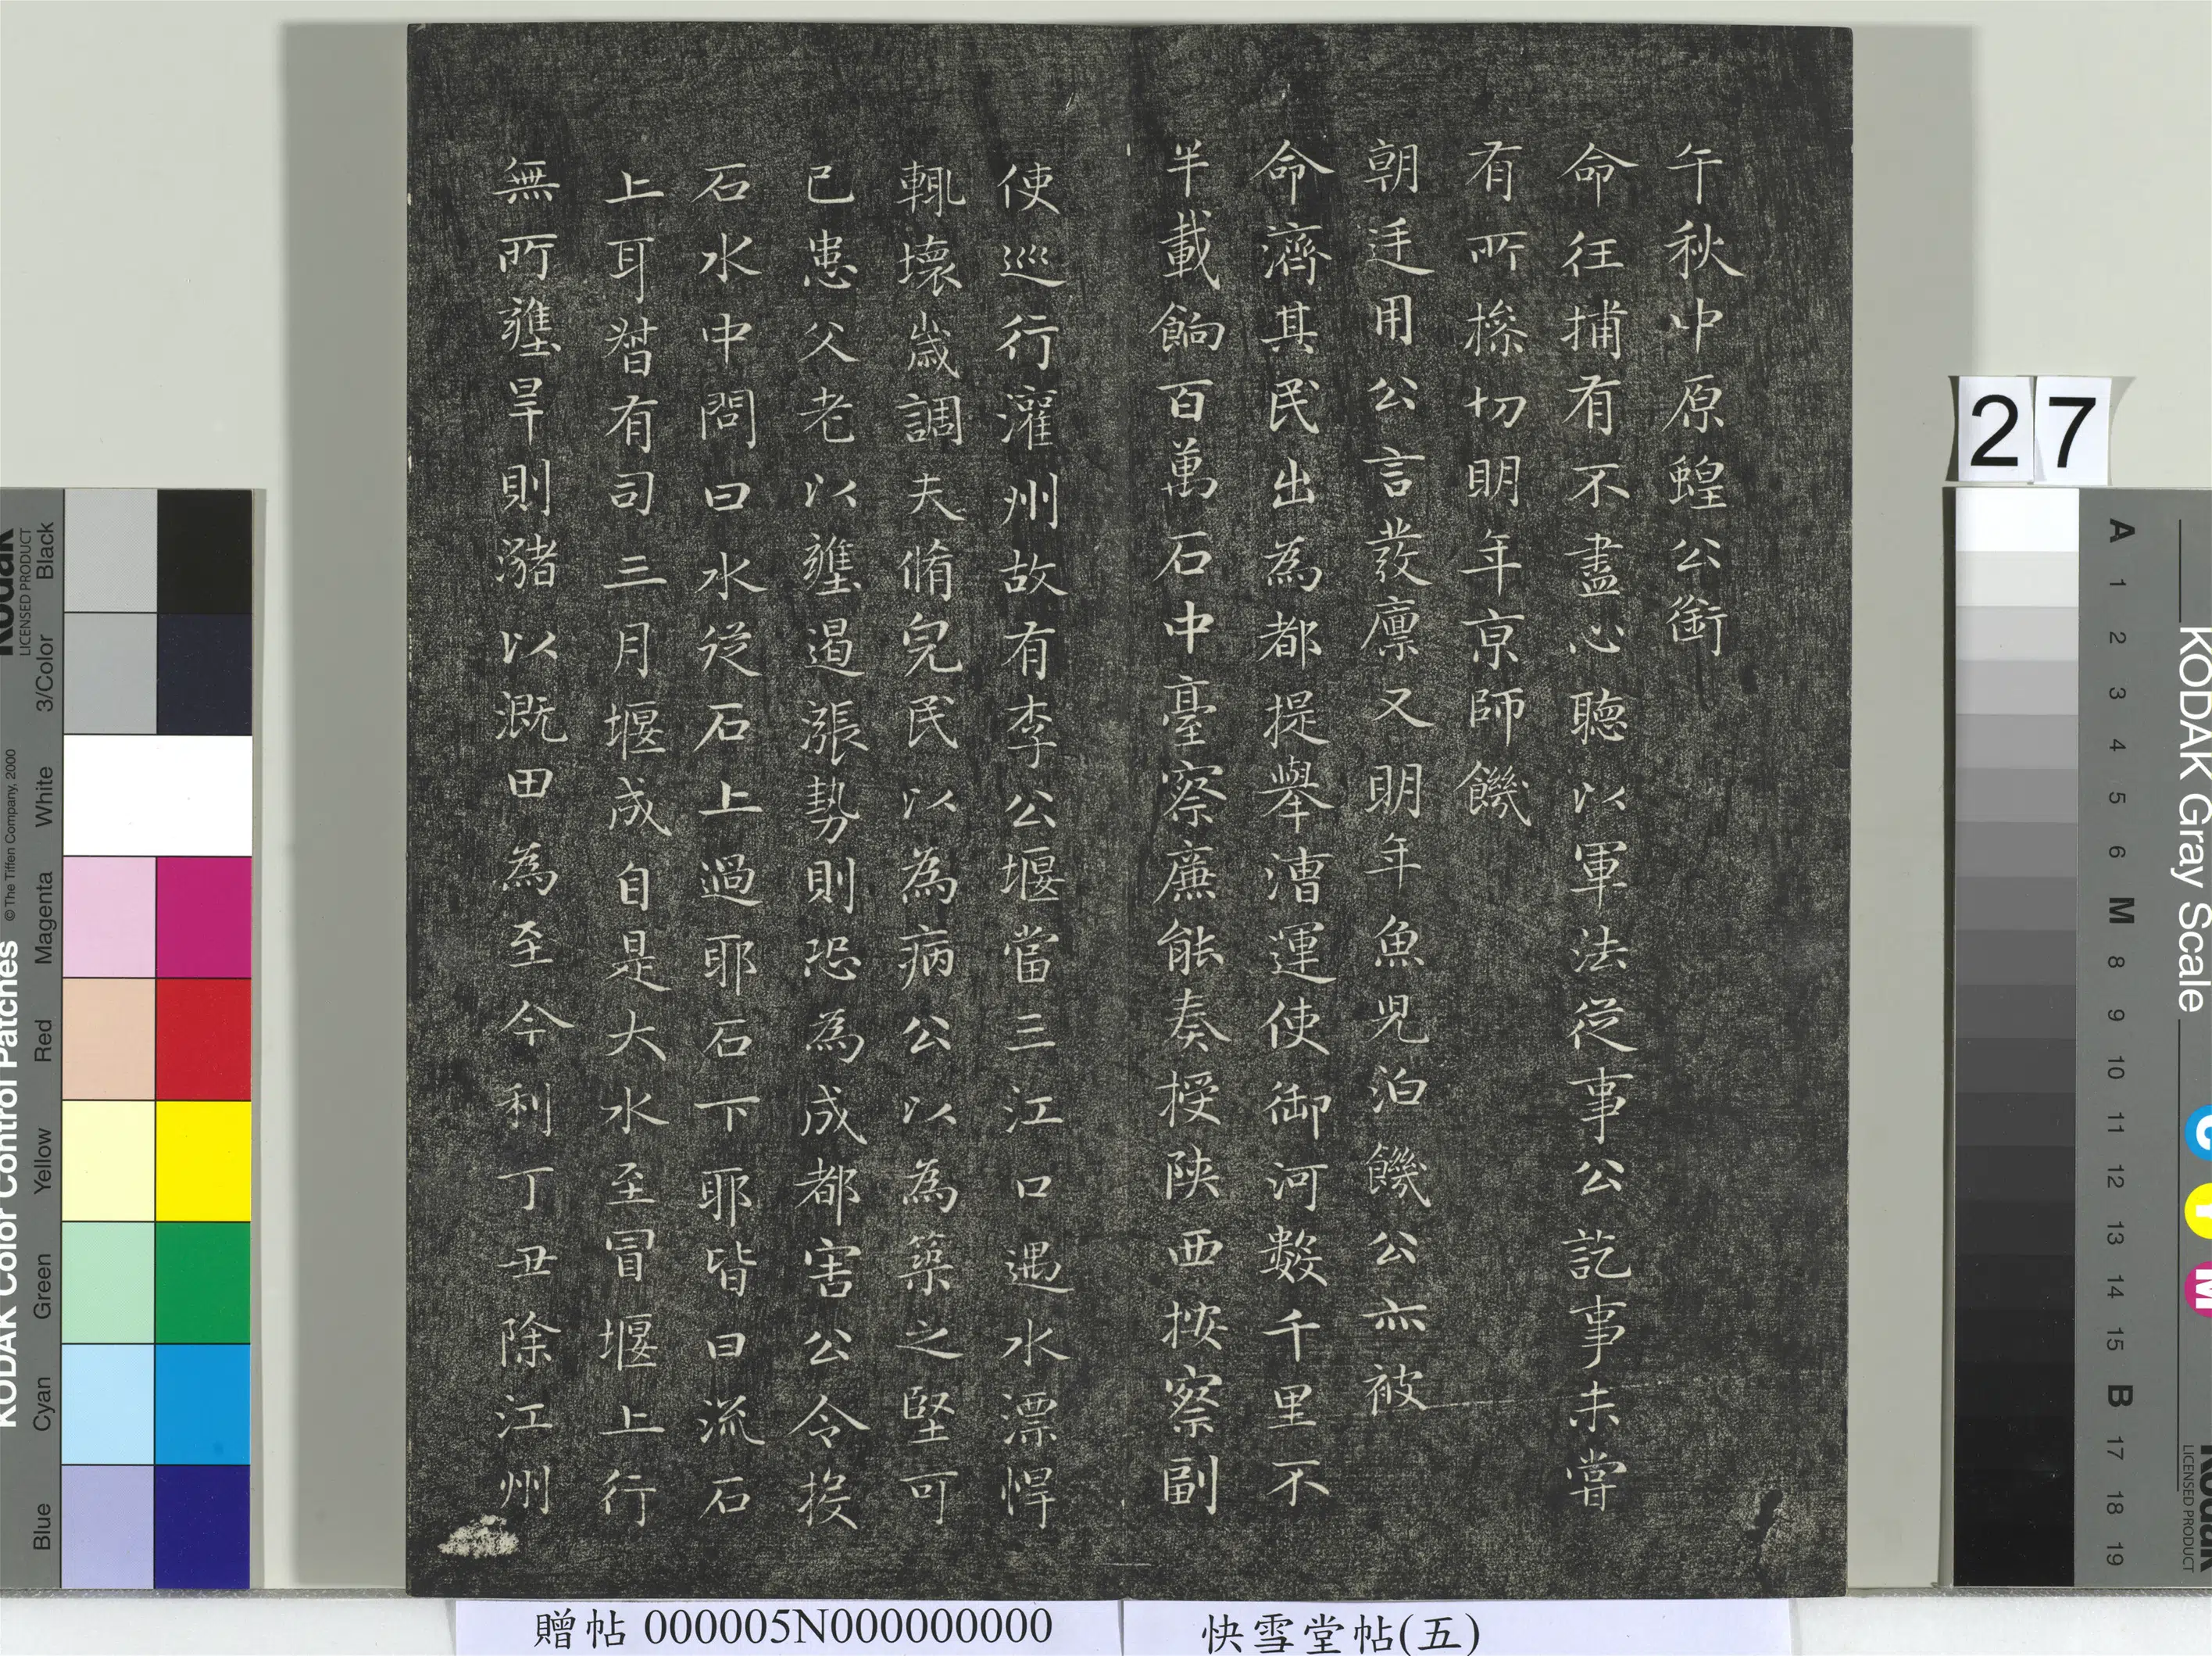 午秋中原蝗公銜
命往捕有不盡心聽以軍法從事公訖事未嘗
有所搽切明年京師饑
朝廷用公言發廪又明年魚児泊饑公亦被
命濟其民出為都提舉漕運使御河數千里不
半載餉百萬石中臺察廉能奏授陝西按察副
使巡行灌州故有李公堰當三江口遇水漂悍
輒壞歳調夫脩完民以為病公以為築之堅可
已患父老以壅遏漲勢則恐為成都害公令投
石水中問曰水從石上過耶石下耶皆曰流石
上耳督有司三月堰成自是大水至冒堰上行
無所壅旱則瀦以溉田為至今利丁丑除江州
27
KODAK Gray Scale
A 1 2 3 4 5 6 M 8 9 10 11 12 13 14 15 B 17 18 19
C Y M
Kodak
LICENSED PRODUCT
KODAK Color Control Patches
© The Tiffen Company, 2000
Kodak
LICENSED PRODUCT
Blue Cyan Green Yellow Red Magenta White 3/Color Black
贈帖 000005N000000000
快雪堂帖(五)